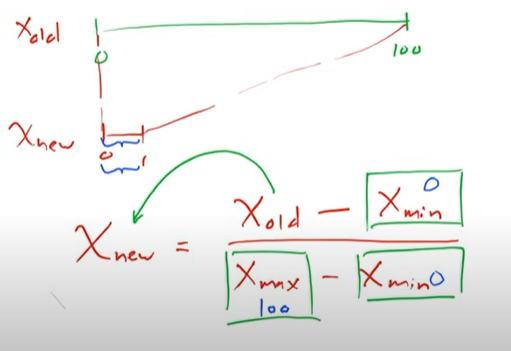 X_old
0 100
X_new
0 1
X_new = (X_old − X_min) / (X_max − X_min)
0
100 0